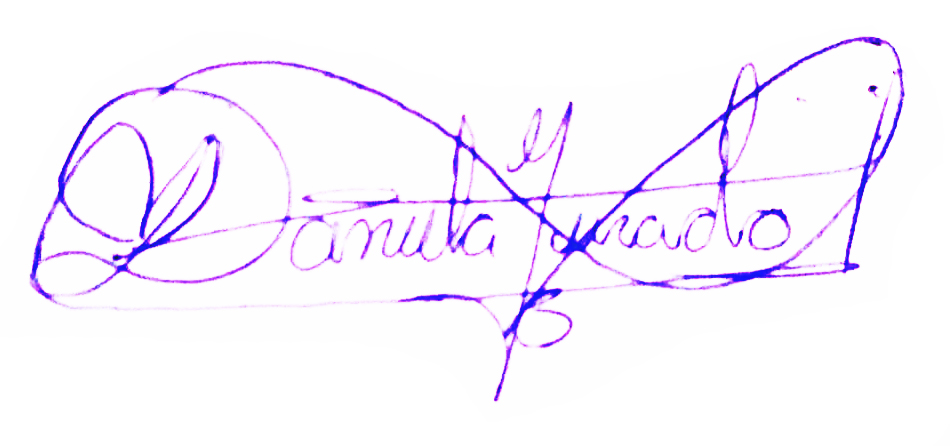 Daniela Jurado